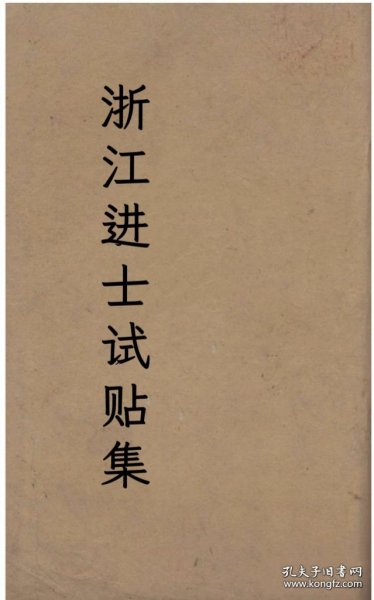 浙江进士试贴集
孔夫子旧书网
www.kongfz.com